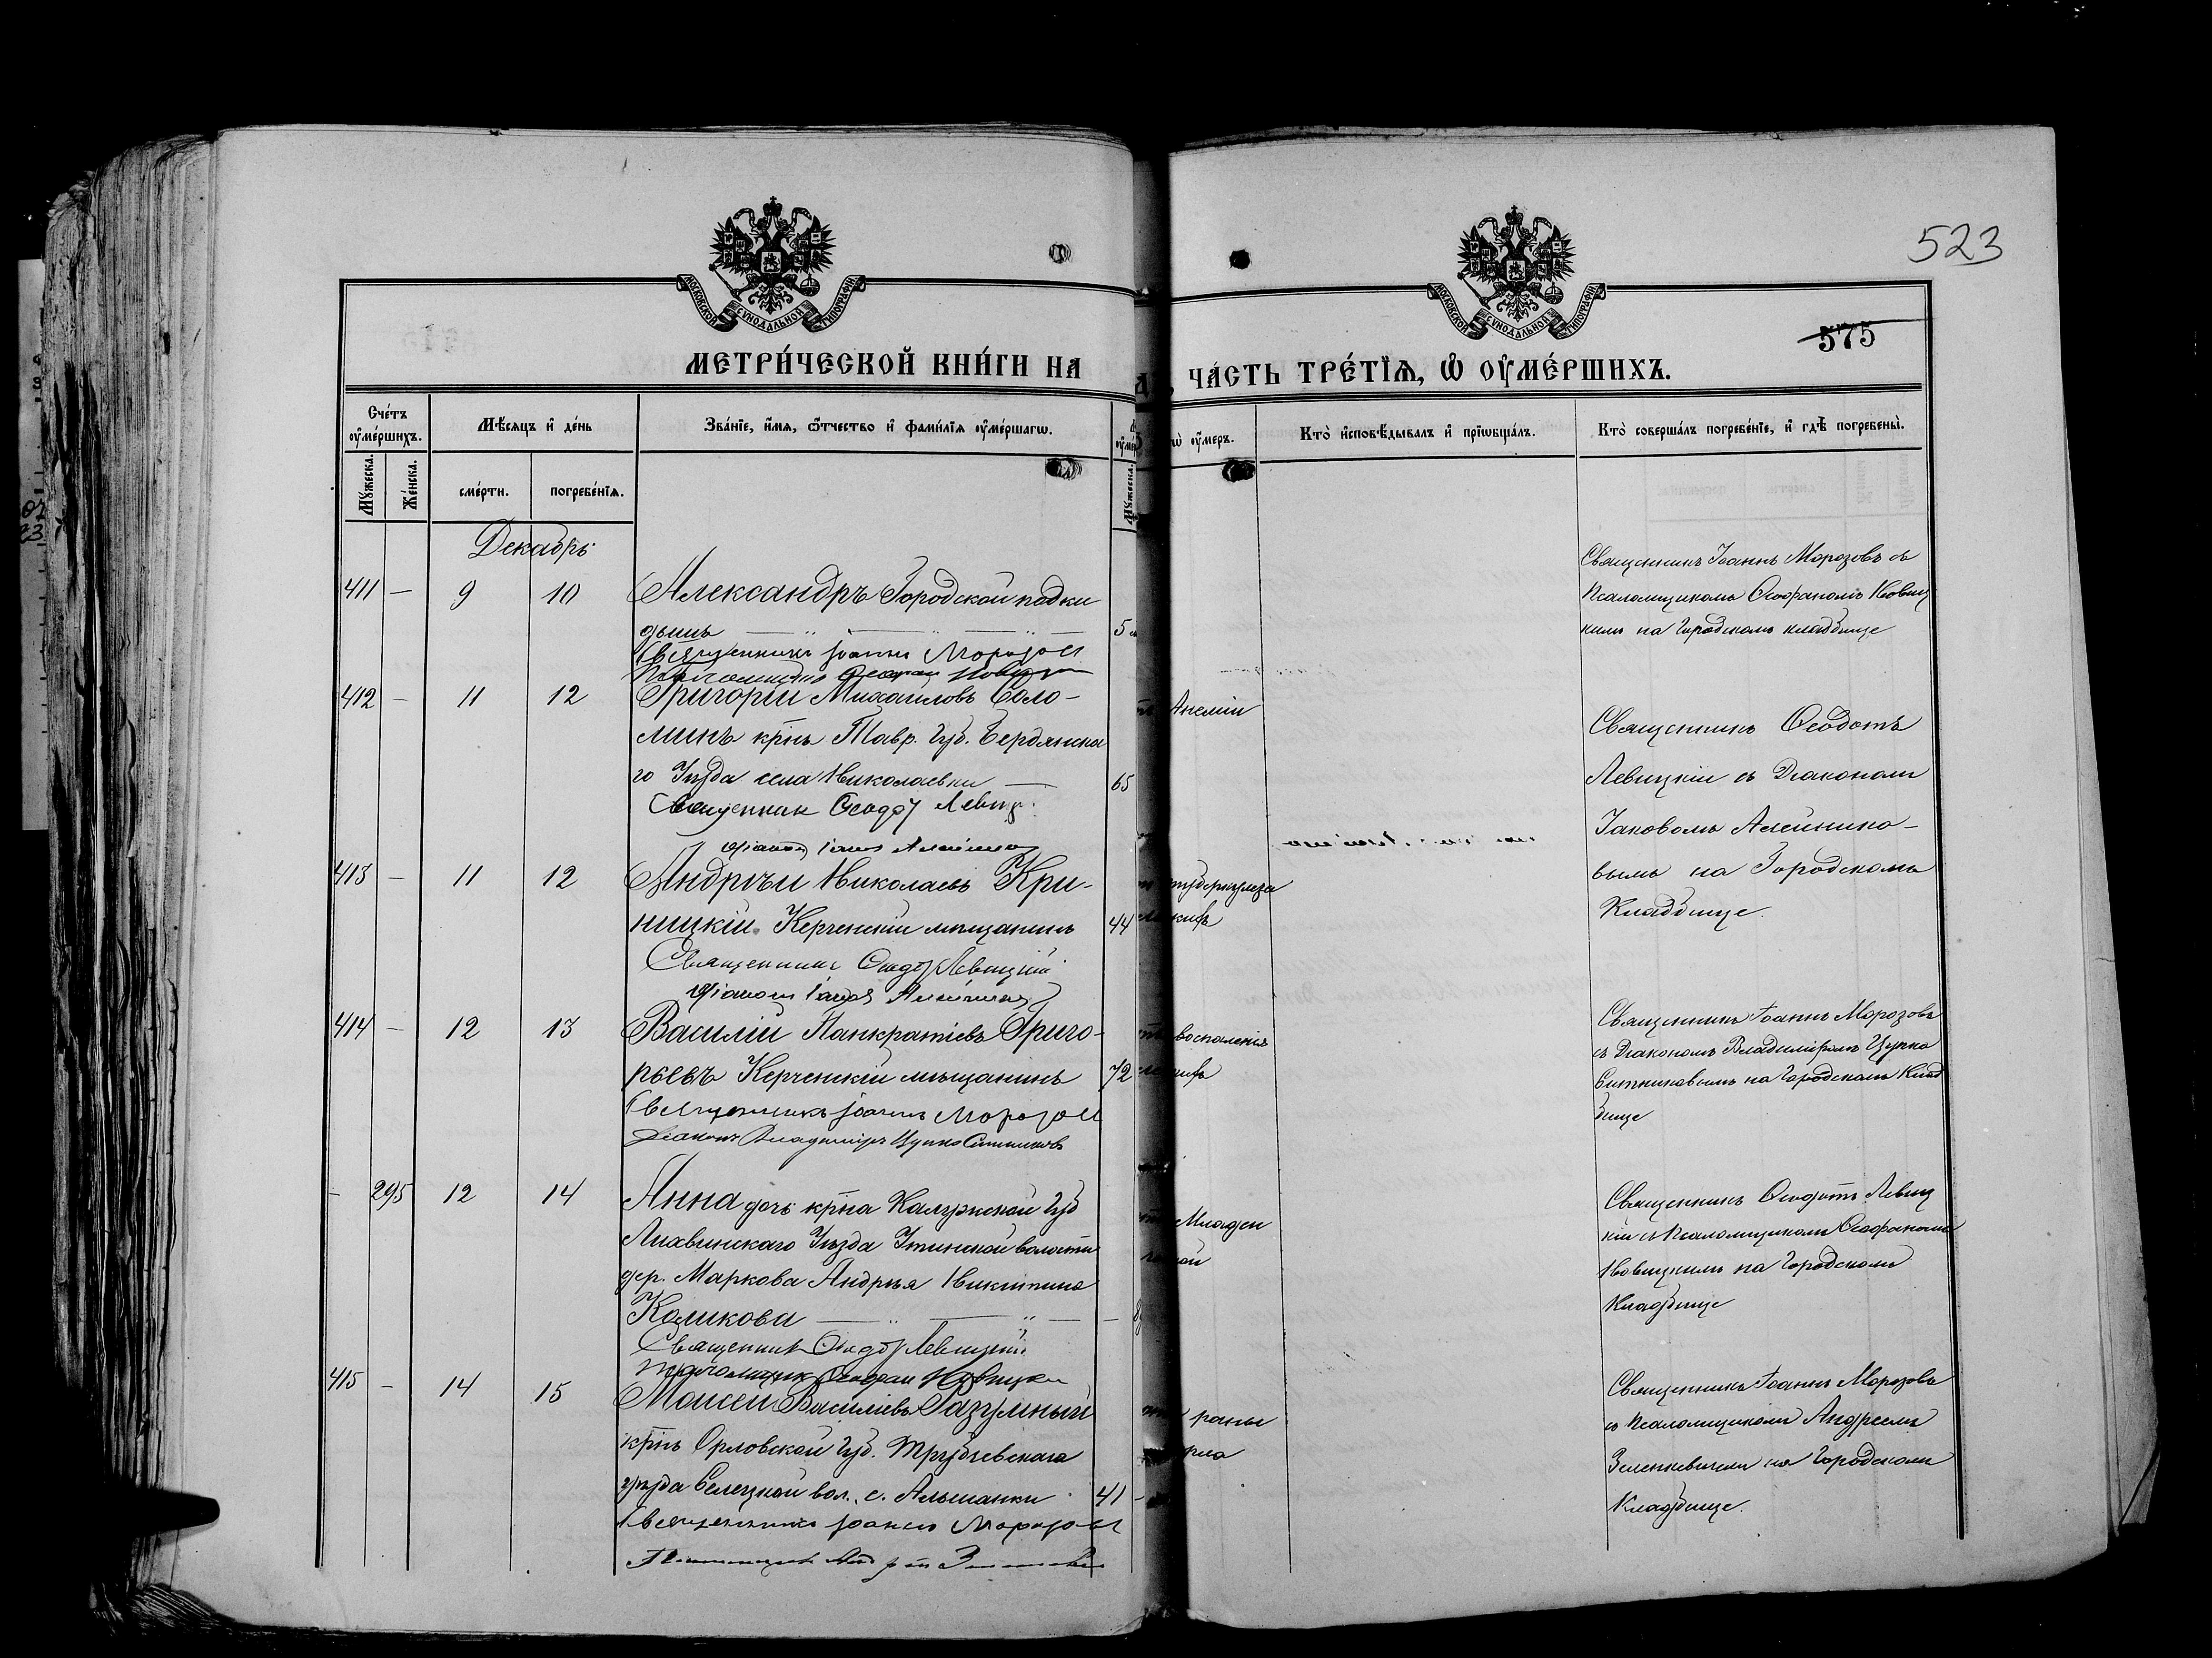 523
575
МОСКОВСКОЙ СУНОДАЛЬНОЙ ТИПОГРАФІИ
МОСКОВСКОЙ СУНОДАЛЬНОЙ ТИПОГРАФІИ
МЕТРИ́ЧЕСКОЙ КНИ́ГИ НА
ЧА́СТЬ ТРЕ́ТЇѦ, Ѡ ОУ҆МЕ́РШИХЪ.
Сче́тъ оу҆ме́ршихъ.
Мѣ́сяцъ и҆ де́нь
Зва́нїе, и҆́мѧ, ѻ҆́тчество и҆ фами́лїѧ оу҆ме́ршагѡ.
оу҆́меръ.
Кто̀ и҆сповѣ́дывалъ и҆ прїѡбща́лъ.
Кто̀ соверша́лъ погребе́нїе, и҆ гдѣ̀ погребены̀.
Мꙋ́жеска.
Же́нска.
сме́рти.
погребе́нїѧ.
Мꙋ́жеска.
Декабрь
411 — 9 10 Александръ Городской подки
дышъ 5
Священникъ Іоаннъ Морозовъ
Священникъ Іоаннъ Морозовъ съ
Псаломщикомъ Ѳеофаномъ Новиц
кимъ на Городскомъ кладбище
412 — 11 12 Григорій Михаиловъ Соло-
минъ крнъ Тавр. Губ. Бердянска
го Уѣзда села Николаевки — 65
Священник Ѳеодот Левиц
Анеміи
Священникъ Ѳеодотъ
Левицкій съ Діакономъ
Іаковомъ Алейнико-
вымъ на Городскомъ
Кладбище.
413 — 11 12 Андрей Николаевъ Кри-
ницкій Керченскій мѣщанинъ 44
Священникъ Ѳеодот Левицкій
туберкулеза
414 — 12 13 Василій Панкратіевъ Григо-
рьевъ Керченскій мѣщанинъ 72
Священникъ Іоаннъ Морозовъ
Діаконъ Владиміръ Цупко Ситниковъ
воспаленія
Священникъ Іоаннъ Морозовъ
съ Діакономъ Владиміромъ Цупко
Ситниковымъ на Городскомъ Клад
бище
- 295 12 14 Анна дочь крна Калужской Губ
Лихвинскаго Уѣзда Утинской волости
дер. Маркова Андрея Никитина
Коликова —
Священник Ѳеодот Левицкій
Псаломщик Ѳеофан Новицкий
Младен
Священникъ Ѳеодотъ Левиц
кій съ Псаломщикомъ Ѳеофаномъ
Новицкимъ на Городскомъ
Кладбище
415 — 14 15 Моисей Василіевъ Разумный
крнъ Орловской Губ. Трубчевскаго
уѣзда Селецкой вол. с. Альшанки 41
Священникъ Іоаннъ Морозовъ
раны
Священникъ Іоаннъ Морозовъ
съ Псаломщикомъ Андреемъ
Зеленкевичемъ на Городскомъ
Кладбище.